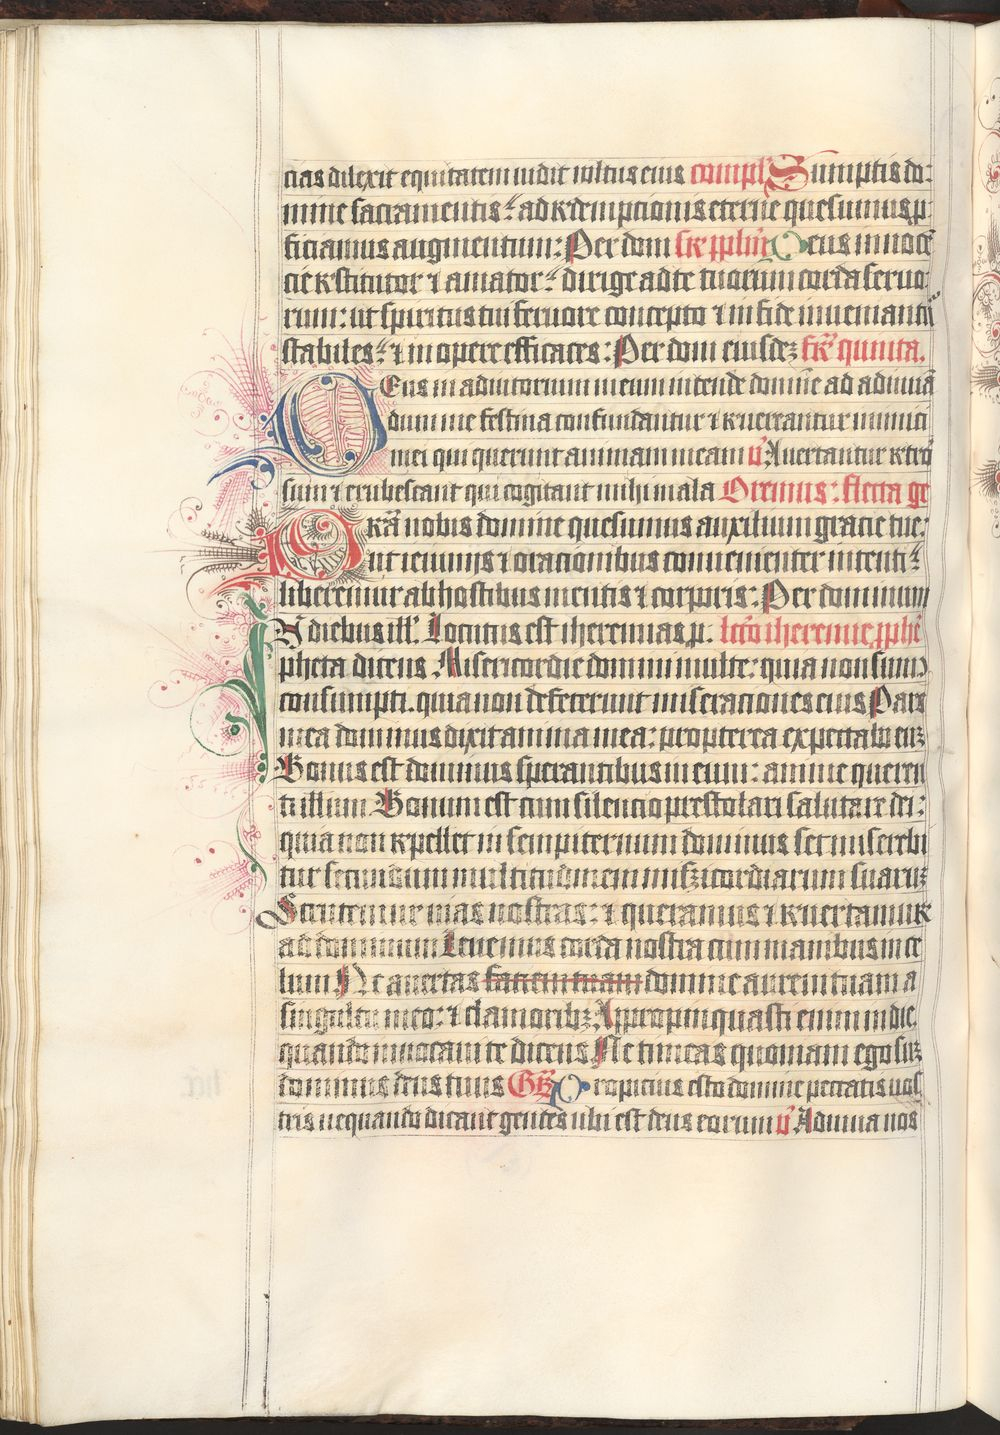 cias dilexit equitatem uidit wltus eius compl' Sumptis do-
mine sacramentis: ad redemptionis eterne quesumus p
ficiamus augmentum: Per dom sr pplm Deus innocē
cie restitutor ⁊ amator: dirige ad te tuorum corda seruo
rum: ut spiritus tui feruore concepto ⁊ in fide inueniantur
stabiles: ⁊ in opere efficaces: Per dom eiusdeꝫ fer' quinta.
Deus in adiutorium meum intende domine ad adiuuā
dum me festina confundantur ⁊ reuereantur inimici
mei qui querunt animam meam v̄ Auertantur retro
sum ⁊ erubescant qui cogitant michi mala Oremus: flecta ge
Presta nobis domine quesumus auxilium gracie tue:
ut ieiunijs ⁊ oracionibus conuenienter intenti:
liberemur ab hostibus mentis ⁊ corporis: Per dominum
N diebus ill'. Locutus est iheremias p. lcō iheremie pphē
pheta dicens. Misericordie domini multe: quia non sumꝰ
consumpti. quia non defecerunt miseraciones eius Pars
mea dominus dixit anima mea: propterea expectabo euꝫ
Bonus est dominus sperantibus in eum: anime queren
ti illum Bonum est cum silencio prestolari salutare dei:
quia non repellet in sempiternum dominus set miserebi
tur secundum multitudinem misꝫicordiarum suaruꝫ
Scrutemur uias nostras: ⁊ queramus ⁊ reuertamur
ad dominum Leuemus corda nostra cum manibus in ce
lum Ne auertas faciem tuam domine aurem tuam a
singultu meo: ⁊ clamoribꝫ Appropinquasti enim in die.
quando inuocaui te dicens Ne timeas quoniam ego suꝫ
dominus deus tuus Gr̄ Propicius esto domine peccatis nos
tris nequando dicant gentes ubi est deus eorum v̄ Adiuua nos